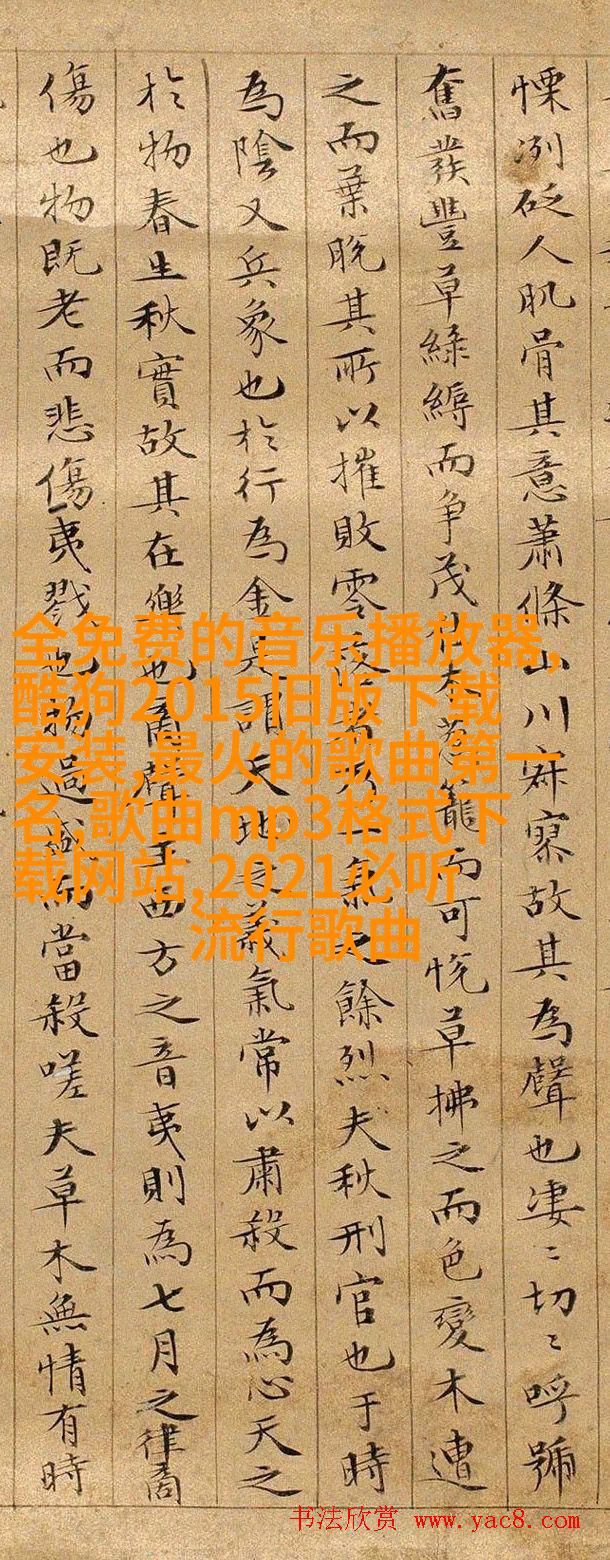 慄冽砭人肌骨其意蕭條山川寂寥故其為聲也凄〻切〻呼號
奮發豐草綠縟而争茂佳木葱籠而可悅草拂之而色變木遭
之而葉脫其所以摧敗零落者乃一氣之餘烈夫秋刑官也于時
為陰又兵象也於行為金是謂天地之義氣常以肅殺而為心天之
於物春生秋實故其在樂也商聲主西方之音夷則為七月之律商
傷也物既老而悲傷夷戮也物過盛而當殺嗟夫草木無情有時
全免费的音乐播放器,
酷狗2015旧版下载
安装,最火的歌曲第一
名,歌曲mp3格式下
载网站,2021必听
流行歌曲
书法欣赏 www.yac8.com